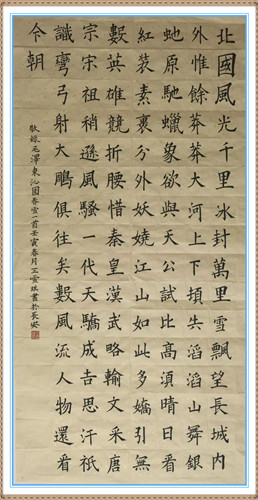 北國風光千里冰封萬里雪飄望長城內
外惟餘莽莽大河上下頓失滔滔山舞銀
虵原馳蠟象欲與天公試比高湏晴日看
紅裝素裹分外妖嬈江山如此多嬌引無
數英雄競折腰惜秦皇漢武略輸文采唐
宗宋祖稍遜風騷一代天驕成吉思汗祇
識彎弓射大鵰俱往矣數風流人物還看
今朝
敬録毛澤東沁園春雪一首壬寅春月王琪書於長安